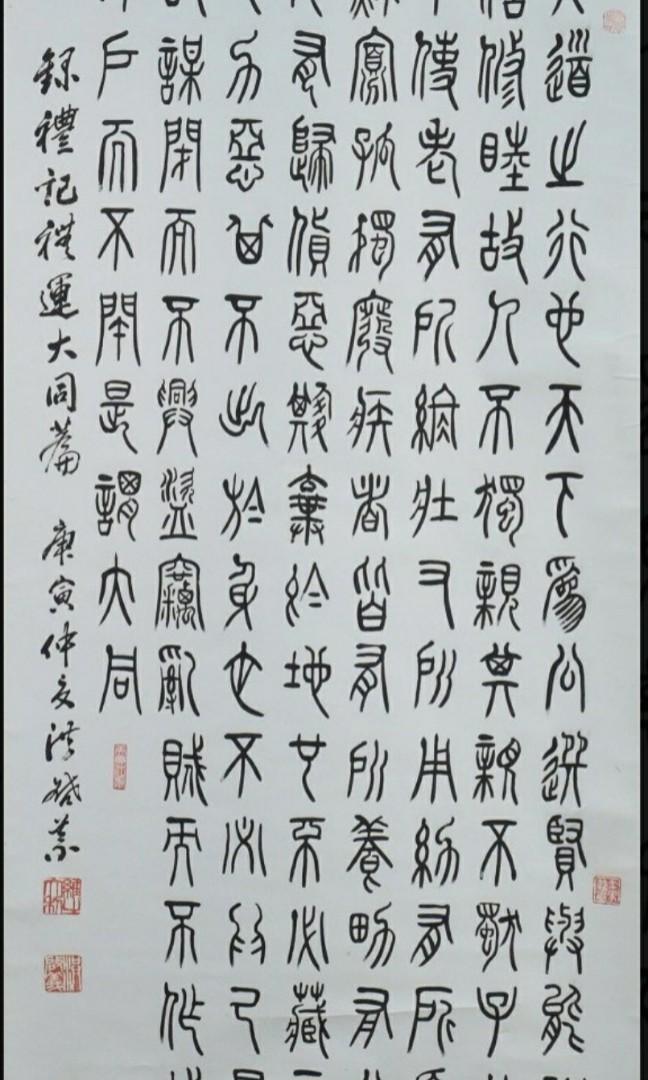 道之行也天下爲公選賢與能
信修睦故人不獨親其親不獨子
使老有所終壯有所用幼有所
寡孤獨廢疾者皆有所養男有
有歸貨惡其棄於地也不必藏
力惡其不出於身也不必爲己
謀閉而不興盜竊亂賊而不作
戶而不閉是謂大同
錄禮記禮運大同篇 庚寅仲夏洪